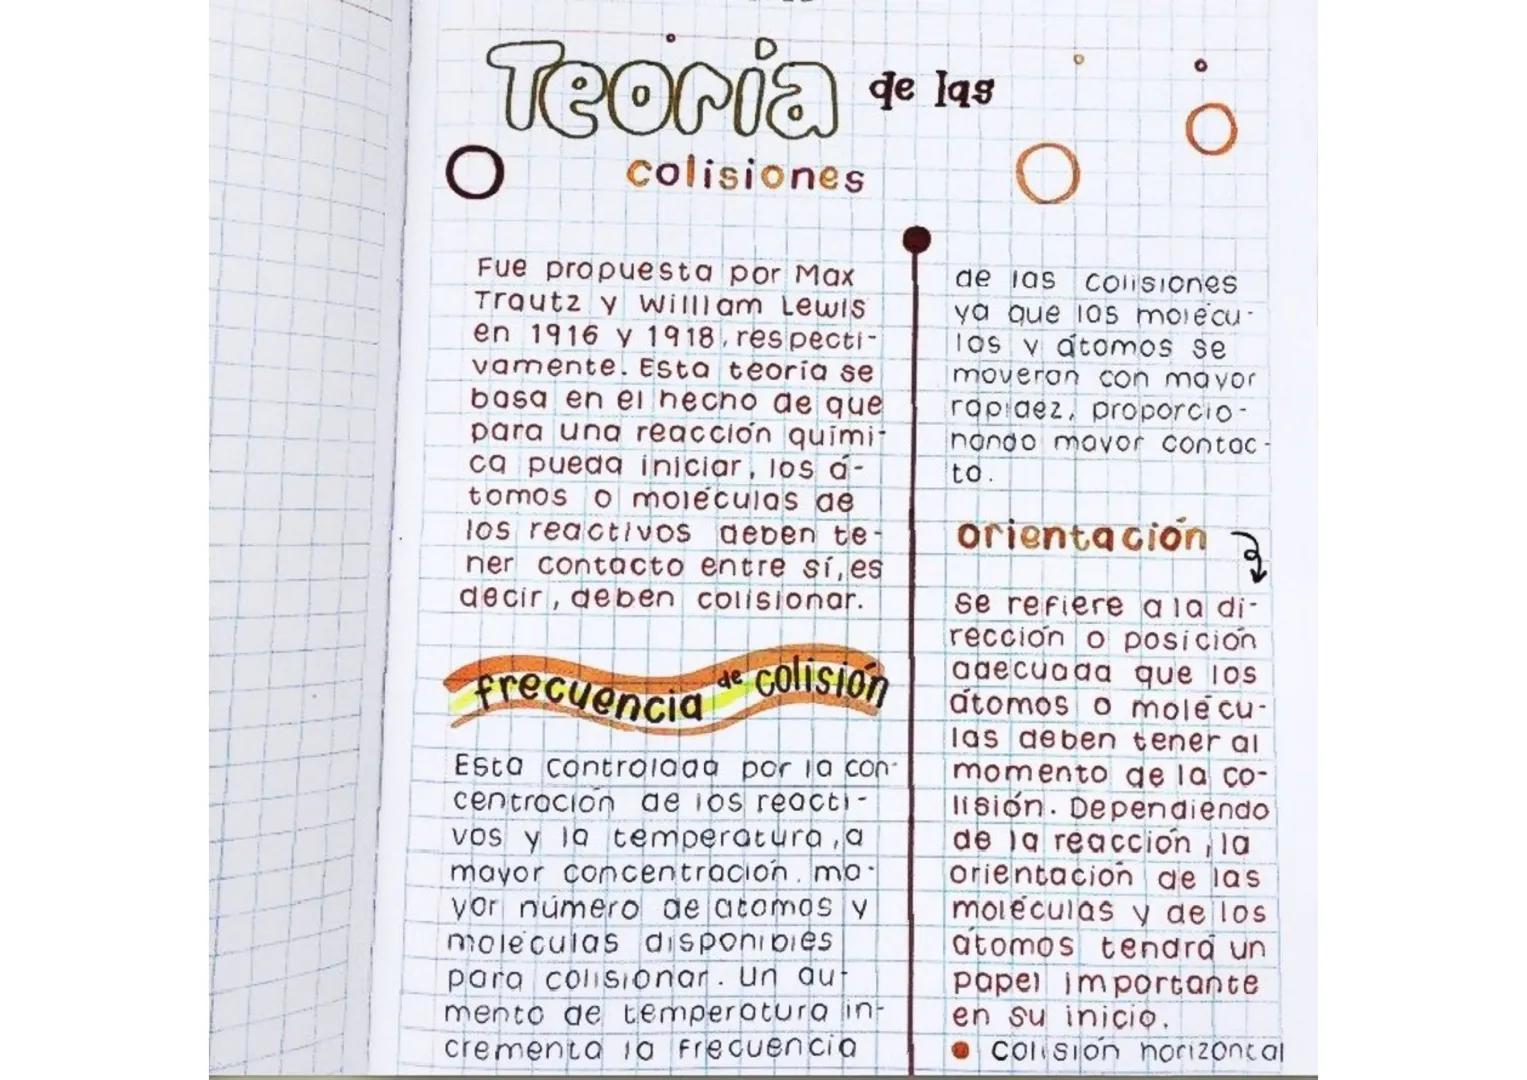 Teoría de las
colisiones
Fue propuesta por Max
Trautz y Willliam Lewis
en 1916 y 1918, respecti-
vamente. Esta teoría se
basa en el hecho de que
para una reacción quími-
ca pueda iniciar, los á-
tomos o moléculas de
los reactivos deben te-
ner contacto entre sí, es
decir, deben colisionar.
frecuencia de colisión
Esta controlada por la con-
centración de los reacti-
vos y la temperatura, a
mayor concentración, ma-
yor número de atomos y
moleculas disponibles
para colisionar. Un au-
mento de temperatura in-
crementa la frecuencia
de las colisiones
ya que las molécu-
las y átomos se
moveran con mayor
rapidez, proporcio-
nando mayor contac-
to.
orientación
Se refiere a la di-
rección o posición
adecuada que los
átomos o molécu-
las deben tener al
momento de la co-
lisión. Dependiendo
de la reacción, la
orientación de las
moléculas y de los
átomos tendrá un
papel importante
en su inicio.
Colisión horizontal